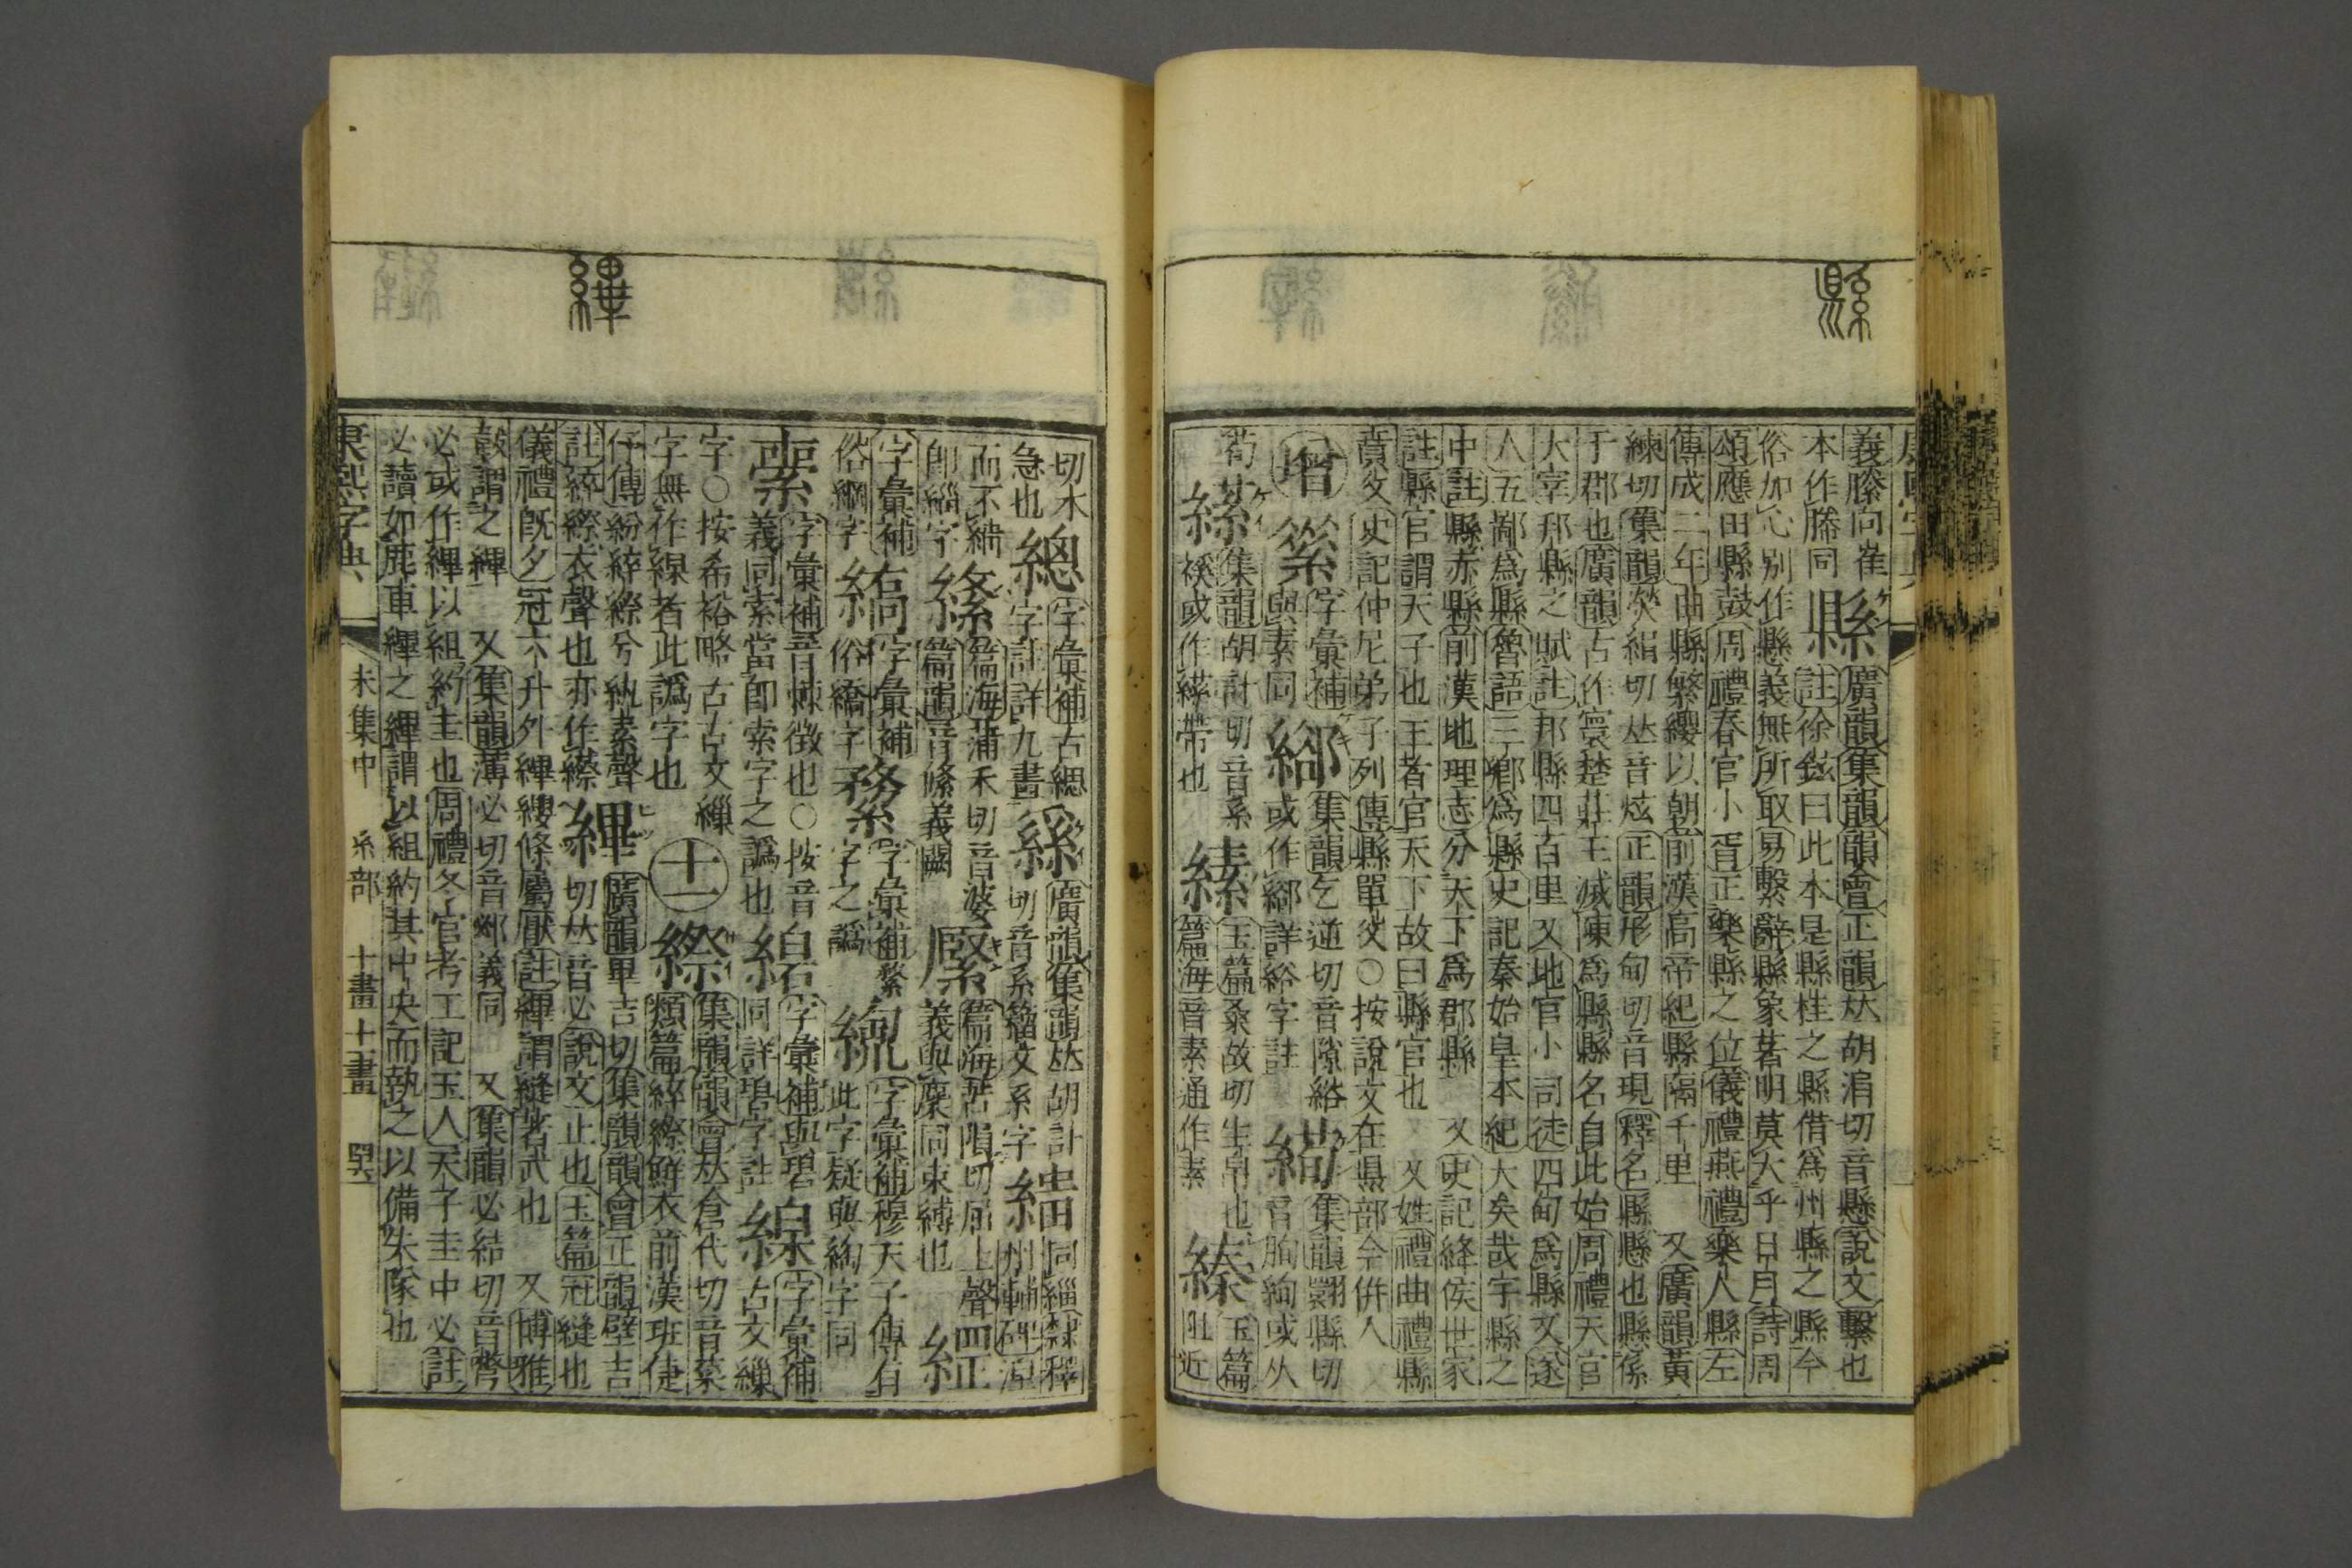 縣
義縢向崔
本作縢同
縣
廣韻集韻韻會正韻𠀤胡涓切音懸說文繫也
註徐鉉曰此本是縣挂之縣借爲州縣之縣今
俗加心別作懸義無所取易繫辭縣象著明莫大乎日月詩周
頌應田縣鼓周禮春官小胥正樂縣之位儀禮燕禮樂人縣左
傳成二年曲縣繁纓以朝前漢高帝紀縣隔千里 又廣韻黃
練切集韻熒絹切𠀤音炫正韻形甸切音現釋名縣懸也縣係
于郡也廣韻古作寰楚莊王滅陳爲縣縣名自此始周禮天官
大宰邦縣之賦註邦縣四百里又地官小司徒四甸爲縣又遂
人五鄙爲縣魯語三鄉爲縣史記秦始皇本紀大矣哉宇縣之
中註縣赤縣前漢地理志分天下爲郡縣 又史記絳侯世家
註縣官謂天子也王者官天下故曰縣官也 又姓禮曲禮縣
賁父史記仲尼弟子列傳縣單父○按說文在県部今倂入
增
字彙補
與素同
集韻乞逆切音隙綌
或作詳綌字註
絢
集韻翾縣切
音朐絢或从
荀
集韻胡計切音系
褉或作緙帶也
縤
玉篇桑故切生帛也
篇海音素通作素
縥
玉篇
阻近
繂
切木
急也
總
字彙補古緦
字註詳九畫
廣韻集韻𠀤胡計
切音系籀文系字
同緇隸釋
州輔碑涅
而不緇
卽緇字
絛
篇海蒲禾切音婆
篇韻音絛義闕
篇海苦隕切屈上聲
義與稇同束縛也
字彙補
俗綱字
縞
字彙補
俗繑字
字彙補
字之譌
字彙補穆天子傳有
此字疑與絢字同
字彙補音悚徵也○按音
義同索當卽索字之譌也
字彙補與碧
同詳碧字註
字彙補
古文繅
字○按希裕略古古文繅
字無作緥者此譌字也
十一
縩
集韻韻會𠀤倉代切音菜
類篇綷縩鮮衣前漢班倢
伃傳紛綷縩兮紈素聲
註綷縩衣聲也亦作䌨
縪
廣韻畢吉切集韻韻會正韻壁吉
切𠀤音必說文止也玉篇冠縫也
儀禮旣夕冠六升外縪纓條屬厭註縪謂縫著於武也 又博雅
㪤謂之縪 又集韻薄必切音邲義同 又集韻必結切音彆
必或作縪以組約圭也周禮冬官考工記玉人天子圭中必註
必讀如鹿車縪之縪謂以組約其中央而執之以備失隊也
康熙字典
未集中 糸部 十畫十一畫